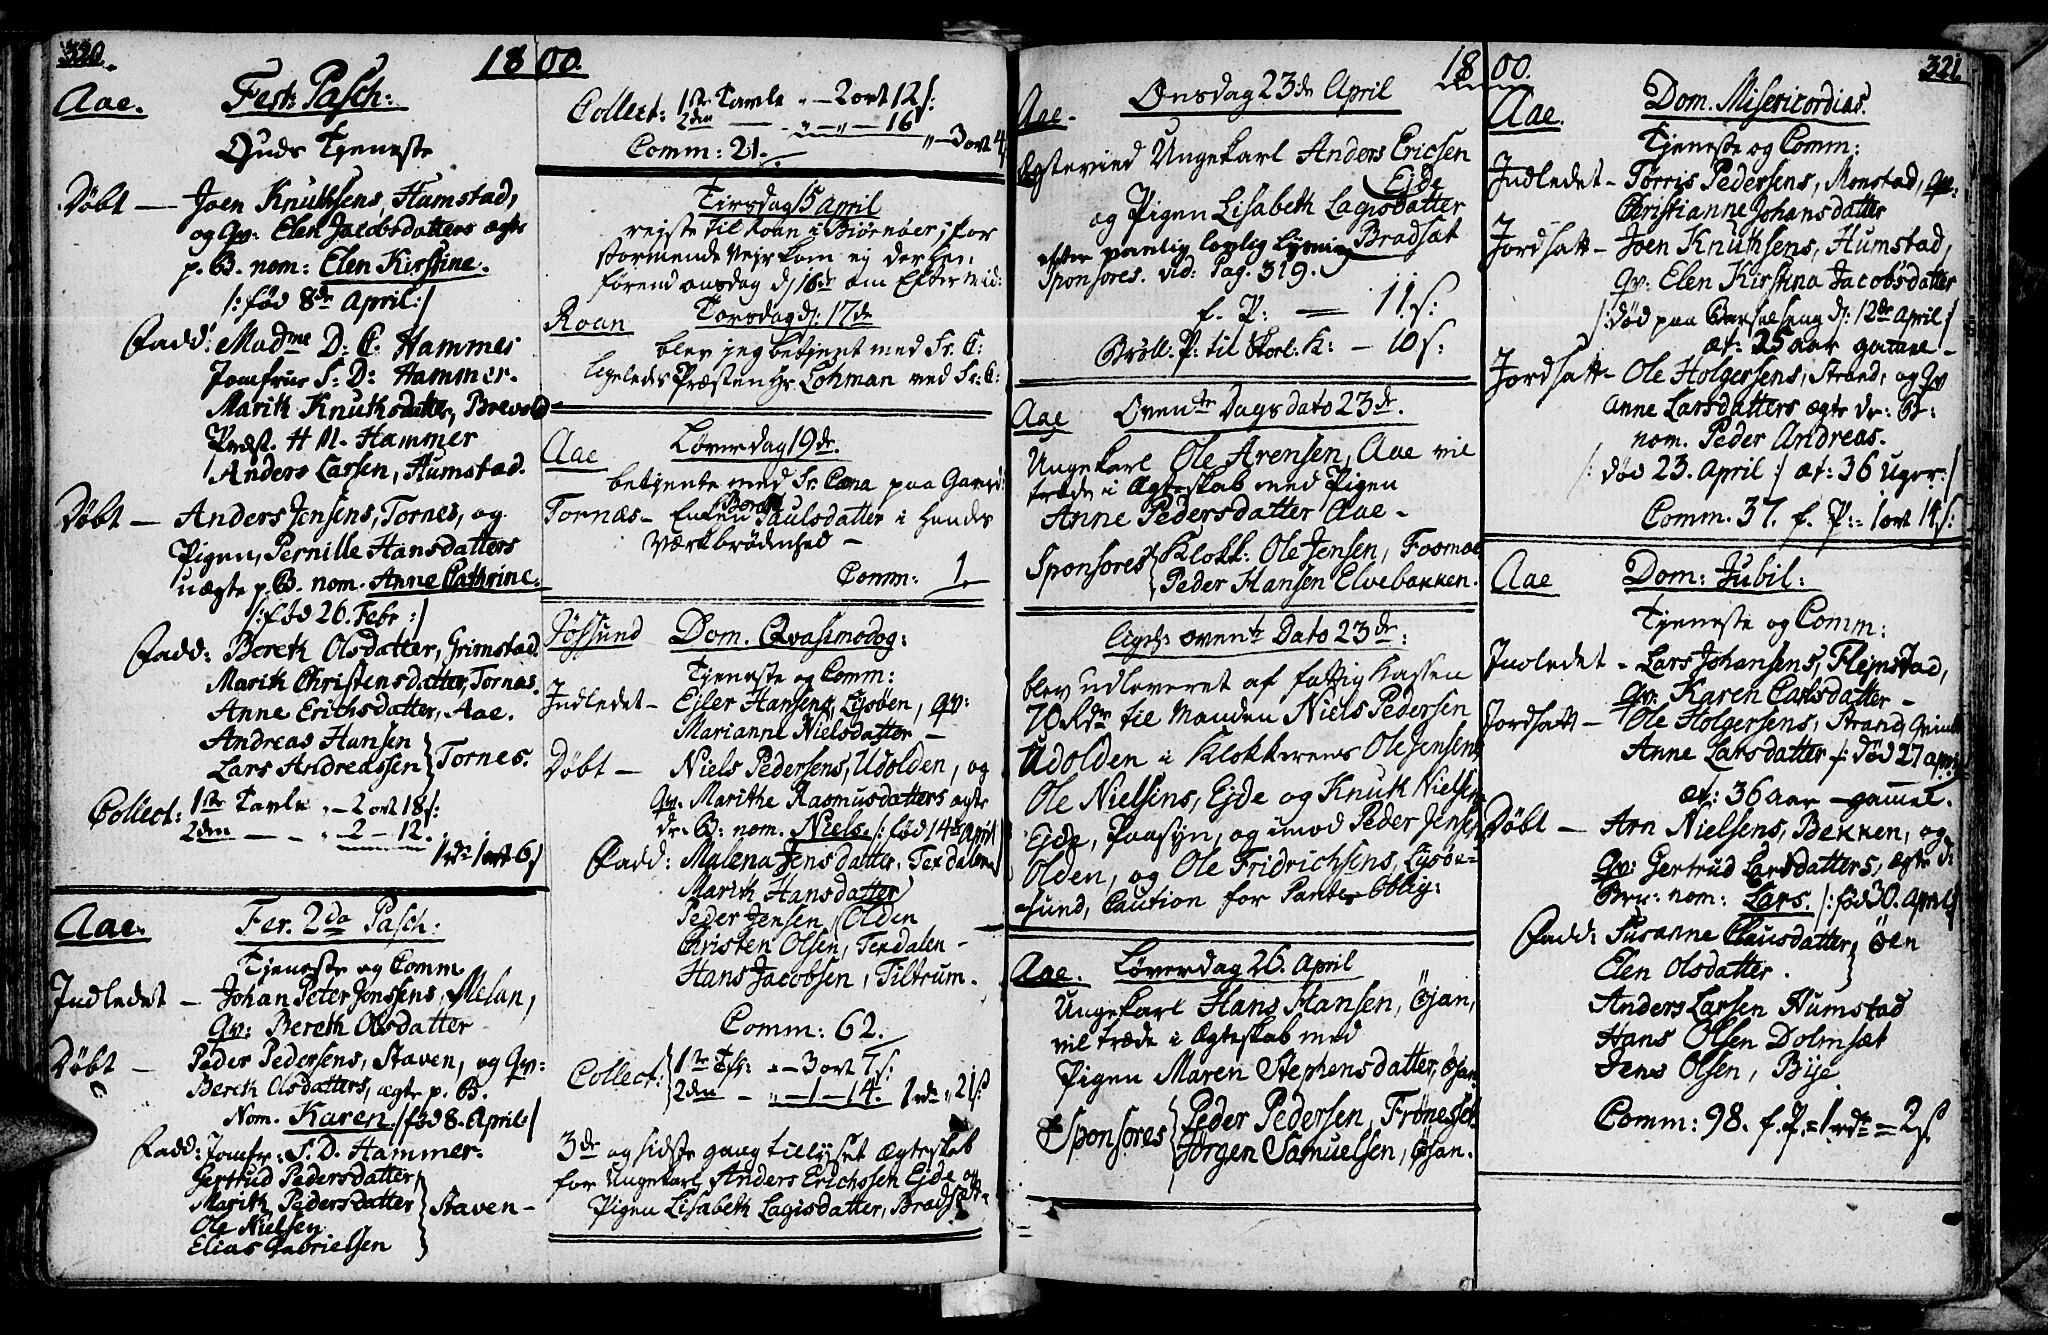 320.
1800.
Aae. Fest: Pasch:
Guds Tjeneste
Døbt — Joen Knuthsens, Humstad,
og Qv: Elen Jacobsdatters ægte
p. B. nom: Elen Kirstine.
/: fød 8de April :/
Fadd: Madme D: C. Hammer
Jomfrue S: D: Hammer.
Marith Knuthsdatter, Brevold
Præst. H M. Hammer
Anders Larsen, Humstad.
Døbt — Anders Jensens, Tornes, og
Pigen, Pernille Hansdatters
uægte p. B. nom. Anne Cathrine.
/: fød 26. Febr :/
Fadd: Bereth Olsdatter, Grimstad.
Marith Christensdatter, Tornæs.
Anne Erichsdatter, Aae.
Andreas Hansen
Lars Andreassen } Tornes.
Collect: 1ste Tavle „ — 2 ort 18 s:
2den — — „ 2 — 12.
1 rd: 1 ort 6 s
Aae. Fer. 2da Pasch:
Tjeneste og Comm
Indledet — Johan Peter Jonssens, Melan,
Qv: Bereth Olsdatter
Døbt — Peder Pedersens, Staven, og Qv:
Bereth Olsdatters, ægte p. B.
Nom. Karen /: fød 8. April :/
Fadd: Jomfr: S. D. Hammer.
Gertrud Pedersdatter
Marith Pedersdatter } Staven —
Ole Nielsen
Elias Gabrielsen
Collect: 1ste Tavle „ — 2 ort 12 s:
2den — „ — „ — 16
„ — 3 ort 4 s
Comm: 21.
Tirsdag 15 April
rejste til Roan i Biørnøer; for
stormende Vejr kom ej derhen,
førend onsdag d. 16de om Eftermid:
Roan Torsdag d: 17de
blev jeg betjent med Sr. C:
ligeledes Præsten Hr Lohman med Sr: C:
Aae Løverdag 19de.
betjente med Sr. Cæna paa Gaard:
Tornæs — Enken Bereth Paulsdatter i hendes
Værkbrødenhed —
Comm: 1.
Jøssund Dom. Qvasimodog:
Tjeneste og Comm:
Indledet — Ejler Hansens, Lysøen, Qv:
Marianne Nielsdatter —
Døbt — Niels Pedersens, Udolden, og
Qv. Marithe Rasmusdatters ægte
dr. B: nom. Niels. /: fød 14de April
Fadd: Malena Jensdatter, Terdalen
Marith Hansdatter
Peder Jensen } Olden
Christen Olsen, Terdalen —
Hans Jacobsen, Tiltrum.
Comm: 62.
Collect: 1ste Tfl: „ — 3 ort 7 s:
2den — „ — 1 — 14. 1 rd „ 21 s
3de og sidste gang tillyset Ægteskab
for Ungekarl Anders Erichssen Ejde og
Pigen Lisabeth Lagisdatter, Bradsæt.
321
1800.
Aae. Onsdag 23de April
Ægtevied Ungekarl Anders Ericsen
Ejde
og Pigen Lisabeth Lagisdatter
efter vanlig lovlig Lysning Bradsæt
Sponsores. vid: Pag. 319.
f. P: — 11 s:
Brøll. P: til Skorl: K: — 10 s:
Aae Ovente Dags dato 23de.
Ungekarl Ole Arensen, Aae vil
træde i Ægteskab med Pigen
Anne Pedersdatter Aae —
Sponsores { Klokk: Ole Jensen, Fosmoe
Peder Hansen Elvebakken.
Ligel: ovente Dato 23de:
blev udleveret af fattig Kassen
70 Rdr til Manden Niels Pedersen
Udolden i Klokkerens Ole Jensens
Ole Nielsens, Ejde og Knuth Nielsens
Ejde, Paasyn, og imod Peder Jensen
Olden, og Ole Fridrichsens, Lysøe-
sund, Caution for Pante Oblig:
Aae. Løverdag 26. April
Ungekarl Hans Hansen, Øjan,
vil træde i Ægteskab med
Pigen Maren Stephensdatter, Øjan
Sponsores { Peder Pedersen, Frønesset.
Jørgen Samuelsen, Øjan.
Aae. Dom. Misericordias.
Tjeneste og Comm:
Indledet — Tørris Pedersens, Monstad, Qv:
Christianne Johansdatter
Jordsatt — Joen Knuthsens, Humstad,
Qv: Elen Kirstina Jacobsdatter
/: død paa Barselseng d: 12de April :/
æt: 25 aar gamel —
Jordsatt — Ole Holgersens, Strand, og Qv
Anne Larsdatters ægte dr: B:
nom. Peder Andreas.
/: død 23. April :/ æt: 36 uger :/
Comm. 37. f. P: = 1 ort 14 s:
Aae Dom: Jubil:
Tjeneste og Comm:
Indledet — Lars Johansens, Flejnstad,
Qv: Karen Carlsdatter —
Jordsatt — Ole Holgersens, Strand, Qvinde
Anne Larsdatter /: død 27 april
æt: 36 aar gamel.
Døbt — Arn Nielsens, Bekken, og
Qv: Gertrud Larsdatters, ægte d:
Brn: nom: Lars. /: fød 30. April
Fadd: Susanne Clausdatter } Øen
Elen Olsdatter.
Anders Larsen Humstad
Hans Olsen Dolmsæt
Jens Olsen, Bye
Comm: 98. f. P. = 1 rdr = 2 s